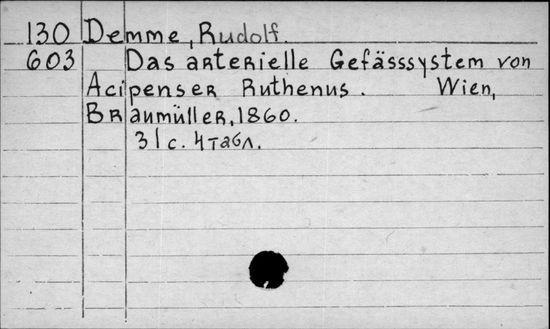 130 Demme, Rudolf.
603 Das arterielle Gefässsystem von
Acipenser Ruthenus. Wien,
Braumüller, 1860.
31 с. 4 табл.